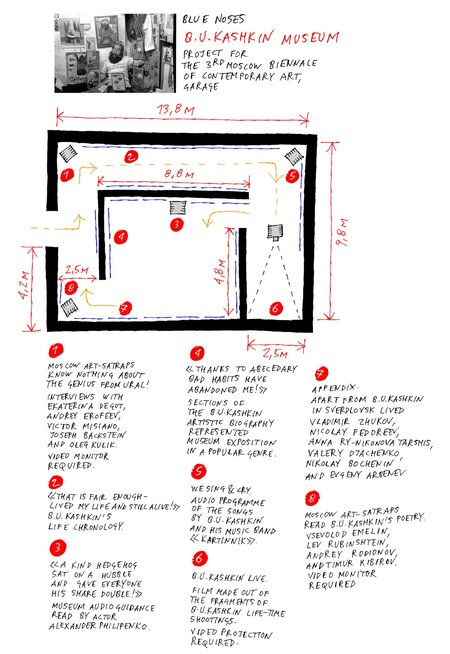 BLUE NOSES
B.U.KASHKIN MUSEUM
PROJECT FOR
THE 3RD MOSCOW BIENNALE
OF CONTEMPORARY ART,
GARAGE
13,8M
1
2
5
8,8M
3
4
9,8M
4,8M
4,2M
2,5M
8
7
6
2,5M
1
MOSCOW ART-SATRAPS
KNOW NOTHING ABOUT
THE GENIUS FROM URAL!
INTERVIEWS WITH
EKATERINA DEGOT,
ANDREY EROFEEV,
VICTOR MISIANO,
JOSEPH BACKSTEIN
AND OLEG KULIK.
VIDEO MONITOR
REQUIRED.
2
«THAT IS FAIR ENOUGH-
LIVED MY LIFE AND STILL ALIVE!»
B.U.KASHKIN'S
LIFE CHRONOLOGY.
3
«A KIND HEDGEHOG
SAT ON A HUBBLE
AND GAVE EVERYONE
HIS SHARE DOUBLE!»
MUSEUM AUDIO GUIDANCE
READ BY ACTOR
ALEXANDER PHILIPENKO.
4
«THANKS TO ABECEDARY
BAD HABITS HAVE
ABANDONED ME!»
SECTIONS OF
THE B.U.KASHKIN
ARTISTIC BIOGRAPHY
REPRESENTED
MUSEUM EXPOSITION
IN A POPULAR GENRE.
5
WE SING & CRY.
AUDIO PROGRAMME
OF THE SONGS
BY B.U.KASHKIN
AND HIS MUSIC BAND
«KARTINNIK».
6
B.U.KASHKIN LIVE.
FILM MADE OUT OF
THE FRAGMENTS OF
B.U.KASHKIN LIFE-TIME
SHOOTINGS.
VIDEO PROJECTION
REQUIRED.
7
APPENDIX.
APART FROM B.U.KASHKIN
IN SVERDLOVSK LIVED
VLADIMIR ZHUKOV,
NICOLAY FEDOREEV,
ANNA RY-NIKONOVA TARSHIS,
VALERY DJACHENKO,
NIKOLAY BOCHENIN
AND EVGENY ARBENEV
8
MOSCOW ART-SATRAPS
READ B.U.KASHKIN'S POETRY.
VSEVOLOD EMELIN,
LEV RUBINSHTEIN,
ANDREY RODIONOV,
AND TIMUR KIBIROV.
VIDEO MONITOR
REQUIRED